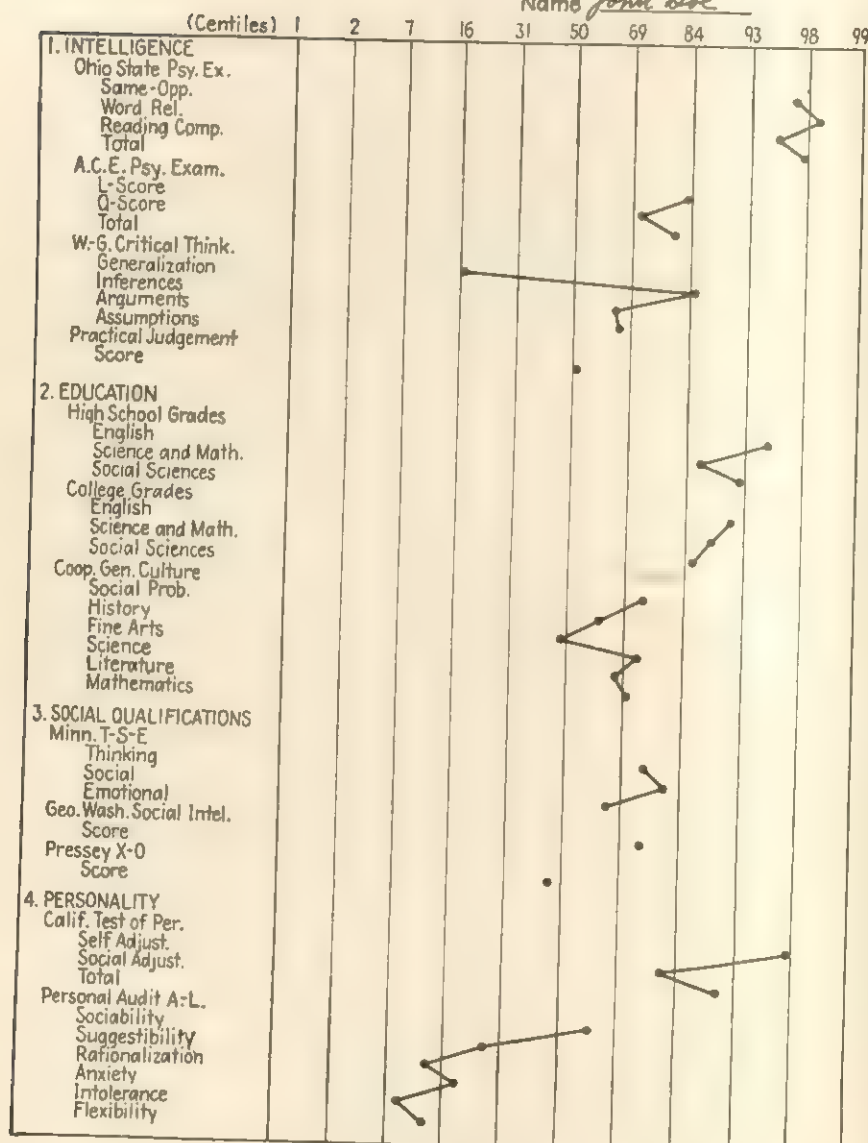 Name John Doe
(Centiles) 1 2 7 16 31 50 69 84 93 98 99
1. INTELLIGENCE
Ohio State Psy. Ex.
Same-Opp.
Word Rel.
Reading Comp.
Total
A.C.E. Psy. Exam.
L-Score
Q-Score
Total
W.-G. Critical Think.
Generalization
Inferences
Arguments
Assumptions
Practical Judgement
Score
2. EDUCATION
High School Grades
English
Science and Math.
Social Sciences
College Grades
English
Science and Math.
Social Sciences
Coop. Gen. Culture
Social Prob.
History
Fine Arts
Science
Literature
Mathematics
3. SOCIAL QUALIFICATIONS
Minn. T-S-E
Thinking
Social
Emotional
Geo. Wash. Social Intel.
Score
Pressey X-O
Score
4. PERSONALITY
Calif. Test of Per.
Self Adjust.
Social Adjust.
Total
Personal Audit A-L.
Sociability
Suggestibility
Rationalization
Anxiety
Intolerance
Flexibility